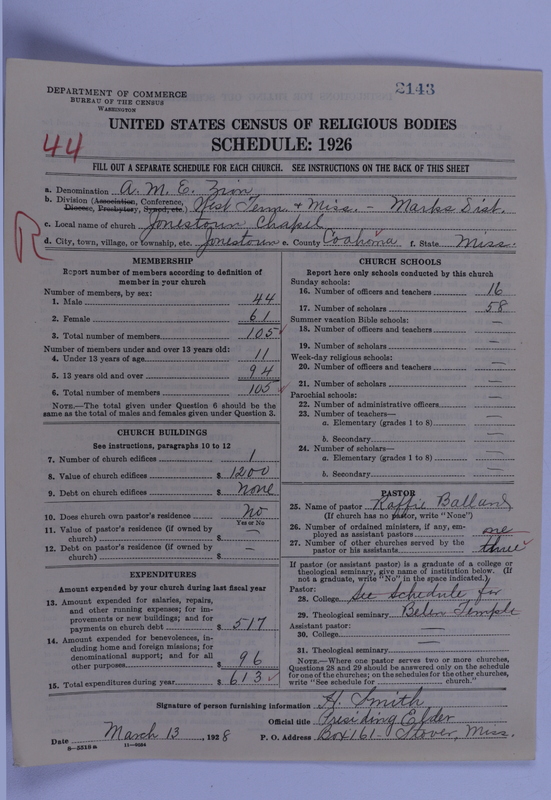 DEPARTMENT OF COMMERCE
BUREAU OF THE CENSUS
WASHINGTON
2143
UNITED STATES CENSUS OF RELIGIOUS BODIES
SCHEDULE: 1926
44
FILL OUT A SEPARATE SCHEDULE FOR EACH CHURCH. SEE INSTRUCTIONS ON THE BACK OF THIS SHEET
R
a. Denomination A. M. E. Zion
b. Division (Association, Conference, Diocese, Presbytery, Synod, etc.) West Tenn. & Miss. - Marks Dist.
c. Local name of church Jonestown Chapel
d. City, town, village, or township, etc. Jonestown e. County Coahoma f. State Miss.
MEMBERSHIP
Report number of members according to definition of
member in your church
Number of members, by sex:
1. Male 44
2. Female 61
3. Total number of members 105
Number of members under and over 13 years old:
4. Under 13 years of age 11
5. 13 years old and over 94
6. Total number of members 105
NOTE.—The total given under Question 6 should be
same as the total of males and females given under Question 3.
CHURCH BUILDINGS
See instructions, paragraphs 10 to 12
7. Number of church edifices 1
8. Value of church edifices $ 1200
9. Debt on church edifices $ None
10. Does church own pastor's residence? No
Yes or No
11. Value of pastor's residence (if owned by
church) $ —
12. Debt on pastor's residence (if owned by
church) $ —
EXPENDITURES
Amount expended by your church during last fiscal year
13. Amount expended for salaries, repairs,
and other running expenses; for im-
provements or new buildings; and for
payments on church debt $ 517
14. Amount expended for benevolences, in-
cluding home and foreign missions; for
denominational support; and for all
other purposes $ 96
15. Total expenditures during year $ 613
CHURCH SCHOOLS
Report here only schools conducted by this church
Sunday schools:
16. Number of officers and teachers 16
17. Number of scholars 58
Summer vacation Bible schools:
18. Number of officers and teachers —
19. Number of scholars —
Week-day religious schools:
20. Number of officers and teachers —
21. Number of scholars —
Parochial schools:
22. Number of administrative officers —
23. Number of teachers—
a. Elementary (grades 1 to 8) —
b. Secondary —
24. Number of scholars—
a. Elementary (grades 1 to 8) —
b. Secondary —
PASTOR
25. Name of pastor Ballard
(If church has no pastor, write "None")
26. Number of ordained ministers, if any, em-
ployed as assistant pastors one
27. Number of other churches served by the
pastor or his assistants three
If pastor (or assistant pastor) is a graduate of a college or
theological seminary, give name of institution below. (If
not a graduate, write "No" in the space indicated.)
Pastor:
28. College See schedule for
29. Theological seminary Belen Temple
Assistant pastor:
30. College —
31. Theological seminary —
NOTE.—Where one pastor serves two or more churches,
Questions 28 and 29 should be answered only on the schedule
for one of the churches; on the schedules for the other churches,
write "See schedule for church."
Signature of person furnishing information H. Smith
Official title Presiding Elder
Date March 13, 1928 P. O. Address Box 161 - Stover, Miss.
8-3518a 11-9584